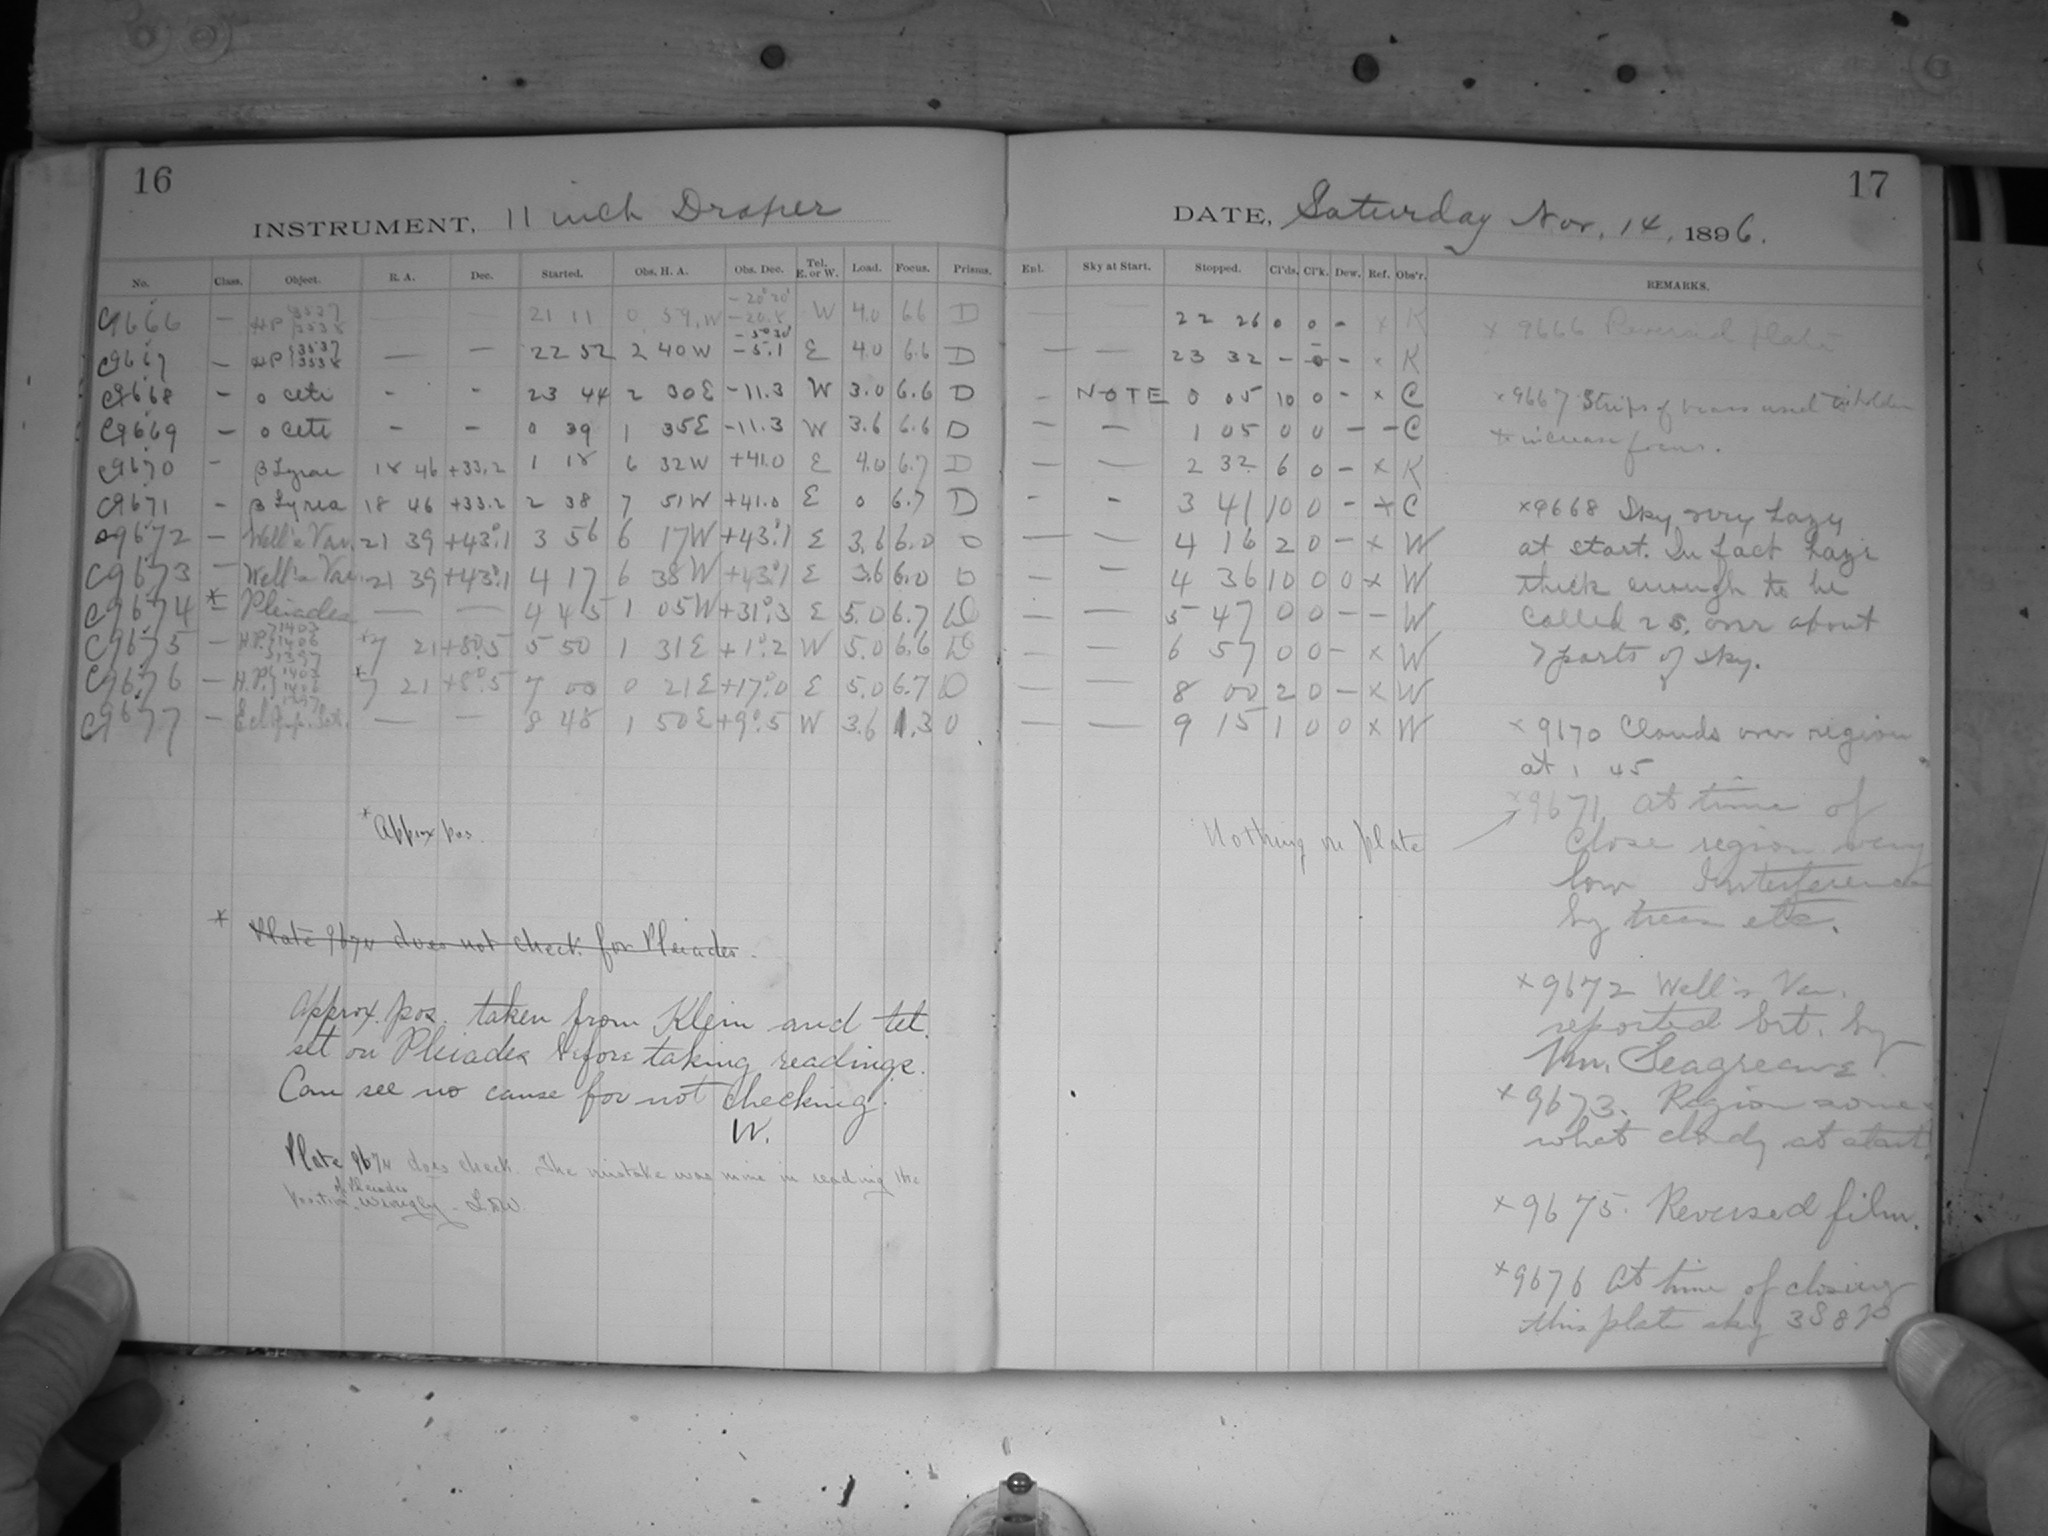 16
INSTRUMENT, 11 inch Draper
No. Class. Object. R. A. Dec. Started. Obs. H. A. Obs. Dec. Tel. E. or W. Load. Focus. Prisms.
C9666 — HP 3537 3538 — — 21 11 0 59 W -20.8 W 4.0 6.6 D
C9667 — HP 3537 3538 — — 22 52 2 40 W -5.1 E 4.0 6.6 D
C9668 - o Ceti - - 23 44 2 30 E -11.3 W 3.0 6.6 D
C9669 — o Ceti - - 0 39 1 35 E -11.3 W 3.6 6.6 D
C9670 - β Lyrae 18 46 +33.2 1 18 6 32 W +41.0 E 4.0 6.7 D
C9671 - β Lyrea 18 46 +33.2 2 38 7 51 W +41.0 E 0 6.7 D
C9672 — Well's Var. 21 39 +43°.1 3 56 6 17 W +43°.1 E 3.6 6.0 0
C9673 — Well's Var. 21 39 +43°.1 4 17 6 38 W +43°.1 E 3.6 6.0 0
C9674 * — Pleiades — — 4 45 1 05 W +31°.3 E 5.0 6.7 D
C9675 — H.P. 1403 1406 1397 *7 21 +8°.5 5 50 1 31 E +1°.2 W 5.0 6.6 D
C9676 — H.P. 1403 1406 1397 *7 21 +8°.5 7 00 0 21 E +17°.0 E 5.0 6.7 D
C9677 — Ecl. Jup. Sat. — — 8 45 1 50 E +9°.5 W 3.6 1.3 0
* Approx pos.
* Plate 9674 does not check for Pleiades.
Approx. pos. taken from Klein and tel.
set on Pleiades before taking readings.
Can see no cause for not checking.
W.
Plate 9674 does check. The mistake was mine in reading the
position of Pleiades wrongly.
17
DATE, Saturday Nov. 14, 1896.
Enl. Sky at Start. Stopped. Cl'ds. Cl'k. Dew. Ref. Obs'r. REMARKS.
— — 22 26 0 0 - x K
— — 23 32 - 0 - x K
- NOTE 0 05 10 0 - x C
— — 1 05 0 0 — - C
— — 2 32 6 0 - x K
- - 3 41 10 0 - x C
— — 4 16 2 0 - x W
— — 4 36 10 0 0 x W
— — 5 47 0 0 — — W
— — 6 57 0 0 - x W
— — 8 00 2 0 — x W
— — 9 15 1 0 0 x W
x 9666 Reversed plate
x 9667 Strips of brass used in holder
to increase focus.
x 9668 Sky very hazy
at start. In fact haze
thick enough to be
called 2 S. over about
7 parts of sky.
x 9170 Clouds over region
at 1 45
x 9671 at time of
close region very
low Interference
by trees etc.
Nothing on plate
x 9672 Well's Var.
reported brt. by
Mr. Seagreave.
x 9673. Region some-
what cloudy at start.
x 9675. Reversed film.
x 9676 At time of closing
this plate sky